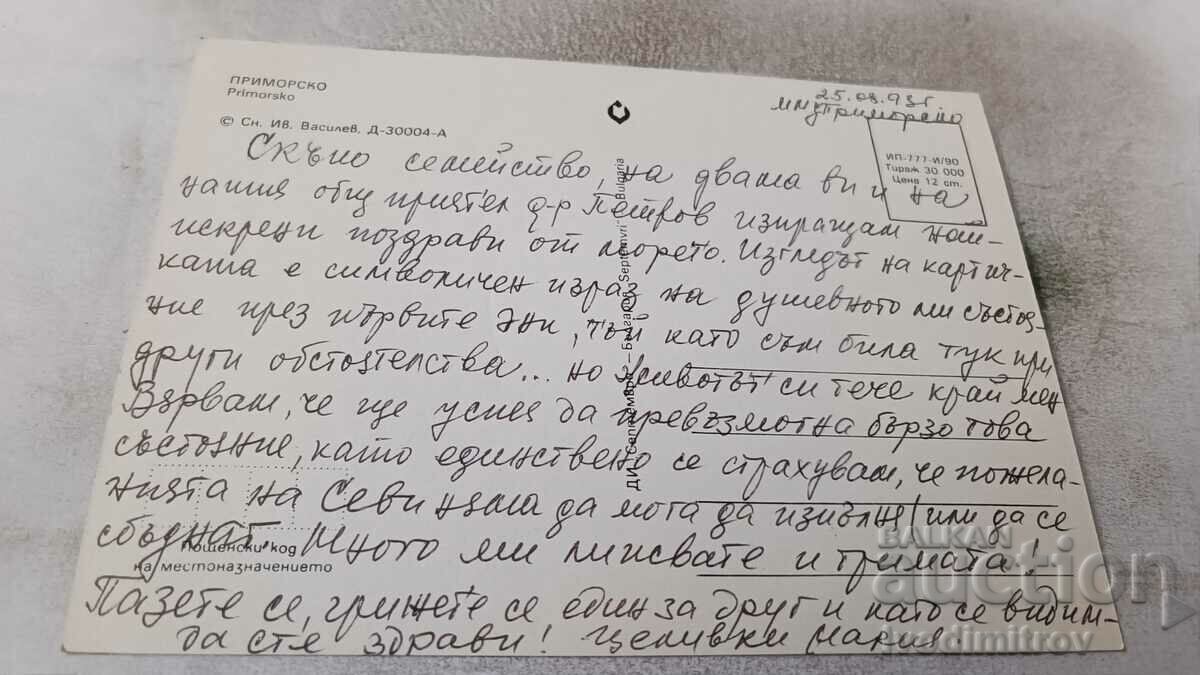 ПРИМОРСКО
Primorsko
© Сн. Ив. Василев, Д-30004-А
25.08.93г.
Приморско
ИП-777-И/90
Тираж 30 000
Цена 12 ст.
Скъпо семейство, на двама ви и на
нашия общ приятел д-р Петров изпращам най-
искрени поздрави от морето. Изгледът на картич-
ката е символичен израз на душевното ми състоя-
ние през първите дни, тъй като съм била тук при
други обстоятелства... но животът си тече край мен
Вярвам, че ще успея да превъзмогна бързо това
състояние, като единствено се страхувам, че пожела-
нията на Севи няма да мога да изпълня/или да се
сбъднат. Много ми липсвате и тримата!
Пазете се, грижете се един за друг и като се видим-
да сте здрави! Целувки Мария
ДИ „Септември" — България „Septemvri" — Bulgaria
Пощенски код
на местоназначението
БАЛКАН
auction
vldimitrov